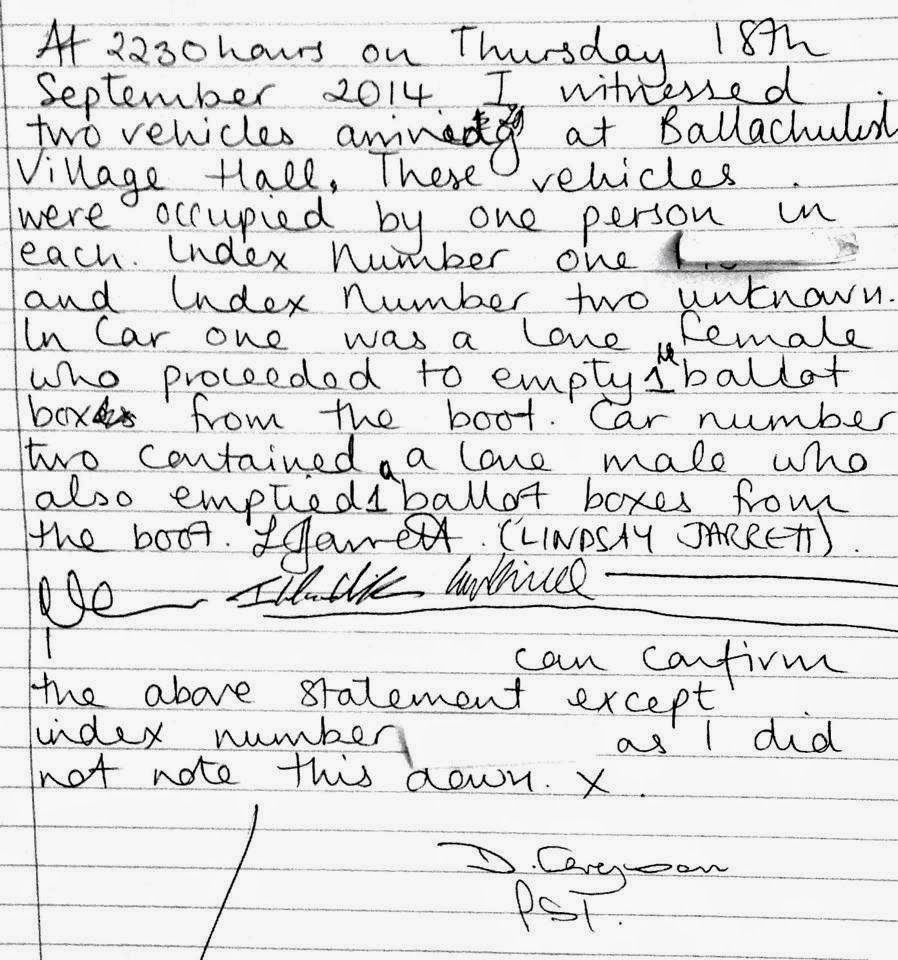 At 2230hours on Thursday 18th
September 2014 I witnessed
two vehicles at Ballachulish
Village Hall. These vehicles
were occupied by one person in
each. Index Number one
and Index Number two unknown.
In Car one was a lone female
who proceeded to empty 1 ballot
box from the boot. Car number
two contained a lone male who
also emptied 1 ballot boxes from
the boot. LJarrett. (LINDSAY JARRETT).
I can confirm
the above statement except
index number as I did
not note this down. x.
D.
PST.